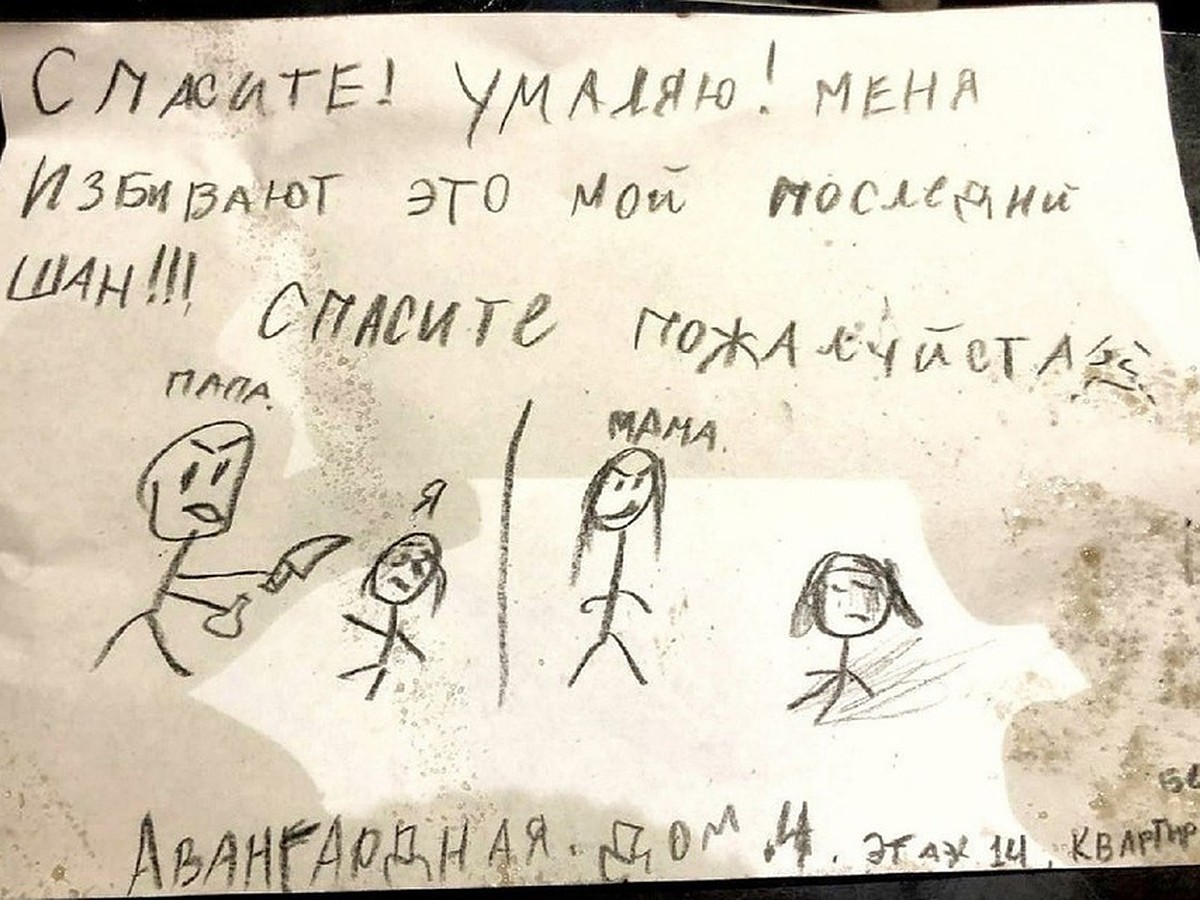 СПАСИТЕ! УМАЛЯЮ! МЕНЯ
ИЗБИВАЮТ ЭТО МОЙ ПОСЛЕДНИЙ
ШАН!!!
СПАСИТЕ ПОЖАЛУЙСТА
ПАПА.
МАМА.
Я
АВАНГАРДНАЯ. ДОМ 4. ЭТАЖ 14, КВАРТИР